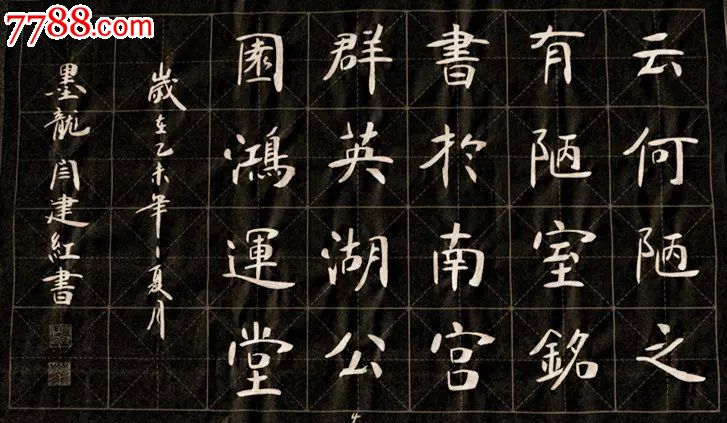 7788.com
云何陋之
有陋室銘
書於南宮
群英湖公
園鴻運堂
歲在乙未年夏月
墨龍閆建紅書
4